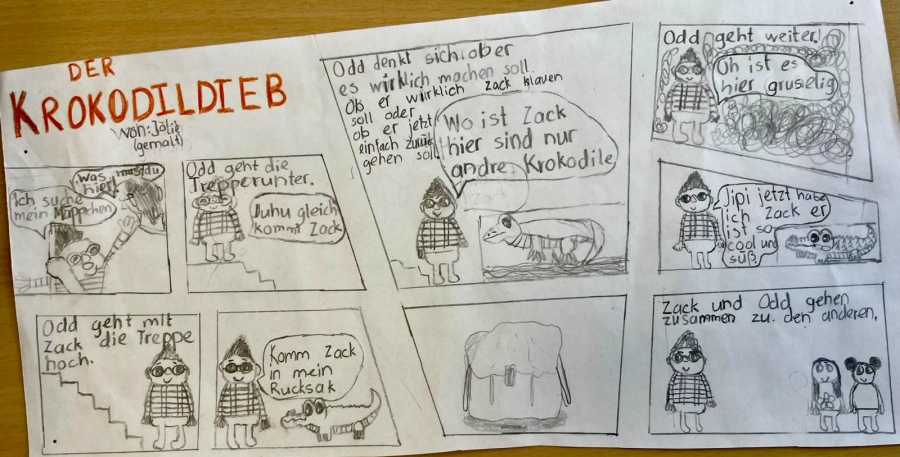 DER
KROKODILDIEB
von: Jolie
(gemalt)
was
machst du
hier
Ich suche
mein Mäppchen
Odd geht die
Treppe runter.
Juhu gleich
kommt Zack
Odd denkt sich ober
es wirklich machen soll
Ob er wirklich Zack klauen
soll oder
ob er jetzt
einfach zurük
gehen soll.
Wo ist Zack
hier sind nur
andre Krokodile
Odd geht weiter!
Oh ist es
hier gruselig
Jipi jetzt habe
ich Zack er
ist so
cool und
süß
Odd geht mit
Zack die Treppe
hoch.
Komm Zack
in mein
Rucksak
Zack und Odd gehen
zusammen zu den anderen.